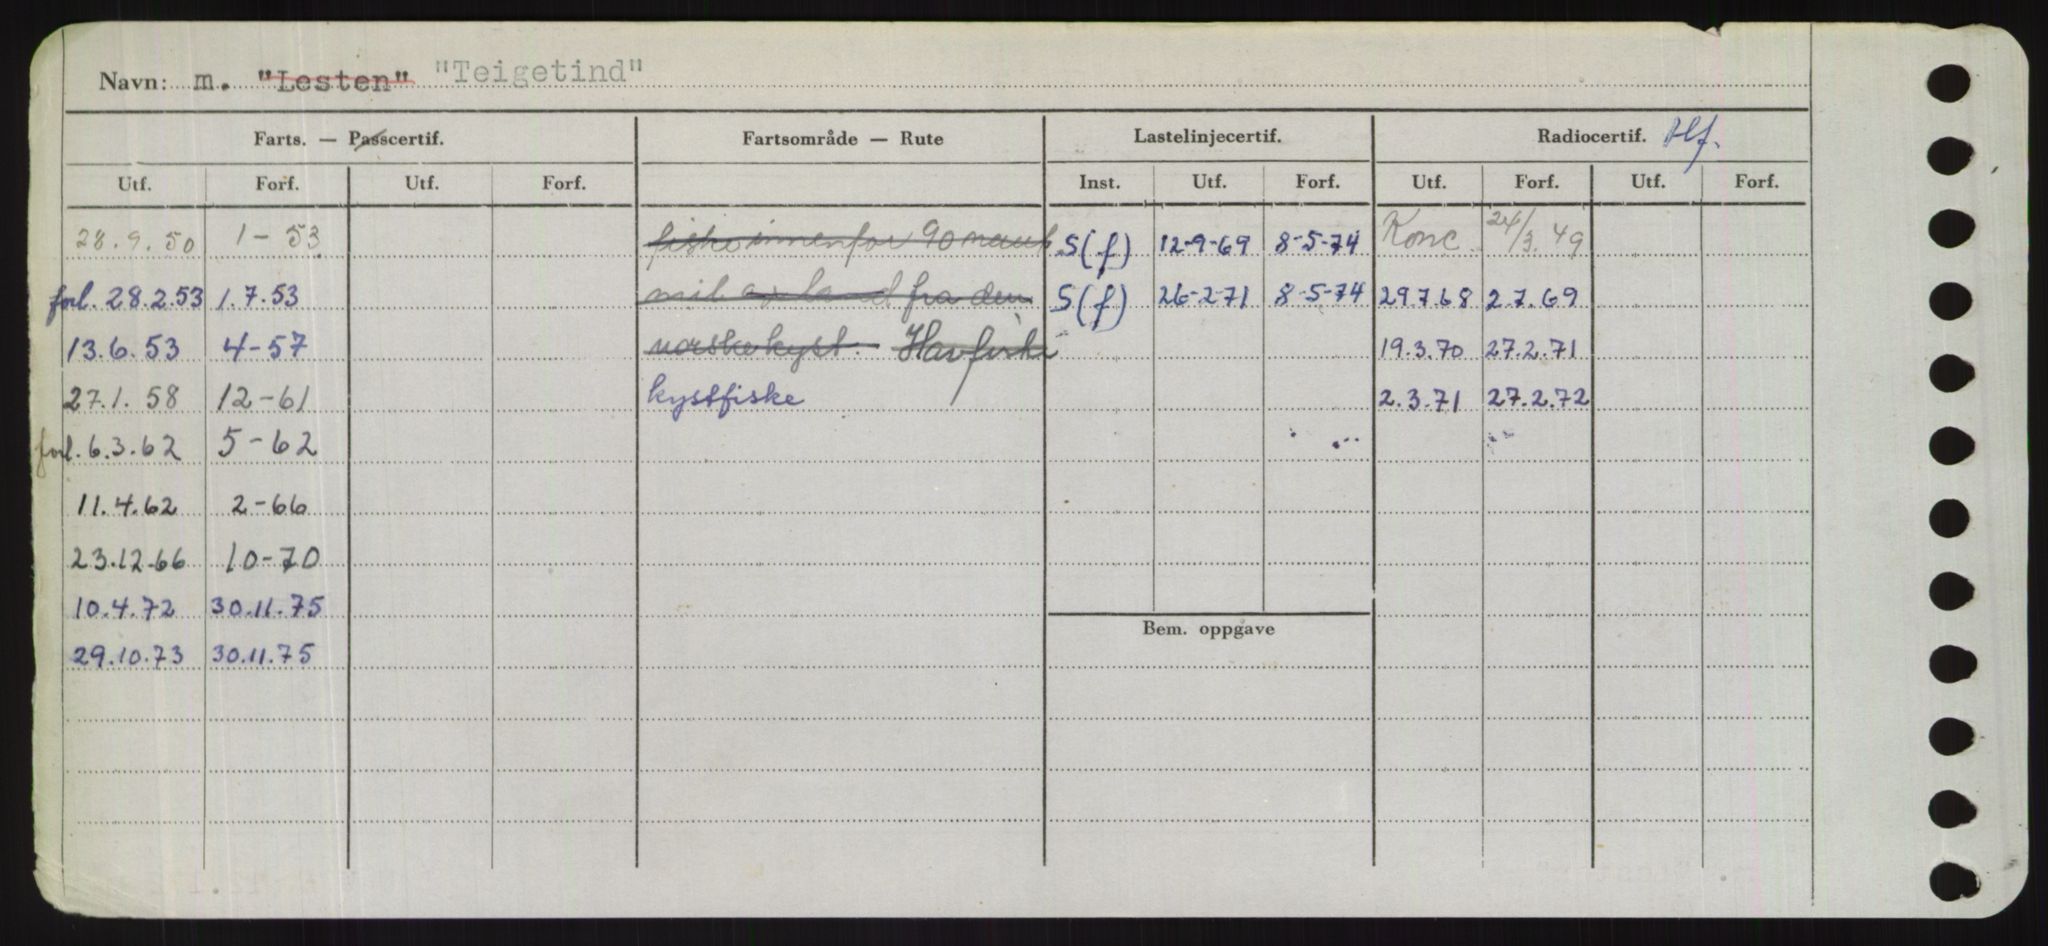 Navn: m. "Lesten" "Teigetind"
Farts. — Passcertif. Fartsområde — Rute Lastelinjecertif. Radiocertif. tlf.
Utf. Forf. Utf. Forf. Inst. Utf. Forf. Utf. Forf. Utf. Forf.
28.9.50 1-53 fiske innenfor 90 naut S(f) 12-9-69 8-5-74 Konc. 26/3.49
forl. 28.2.53 1.7.53 mil av land fra den S(f) 26-2-71 8-5-74 29.7.68 2.7.69
13.6.53 4-57 norske kyst. - Havfiske 19.3.70 27.2.71
27.1.58 12-61 kystfiske 2.3.71 27.2.72
forl. 6.3.62 5-62
11.4.62 2-66
23.12.66 10-70
10.4.72 30.11.75
Bem. oppgave
29.10.73 30.11.75